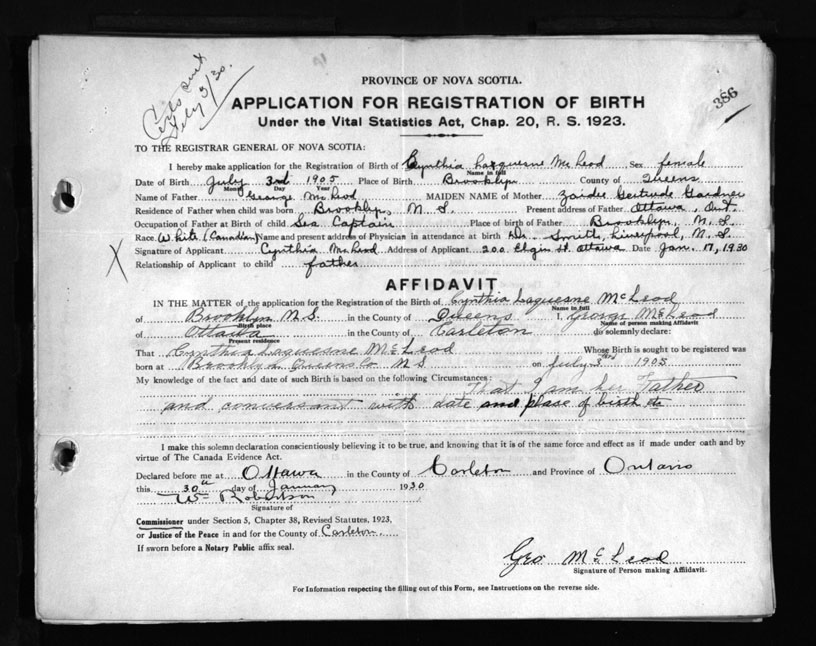 Certs sent
Feby 3/30.
386
PROVINCE OF NOVA SCOTIA.
APPLICATION FOR REGISTRATION OF BIRTH
Under the Vital Statistics Act, Chap. 20, R. S. 1923.
TO THE REGISTRAR GENERAL OF NOVA SCOTIA:
I hereby make application for the Registration of Birth of Cynthia Laquesne McLeod Sex female
Name in full
Date of Birth July 3rd 1905 Place of Birth Brooklyn County of Queens
Month Day Year
Name of Father George McLeod MAIDEN NAME of Mother Zaidee Gertrude Gardner
Residence of Father when child was born Brooklyn, N. S. Present address of Father Ottawa, Ont.
Occupation of Father at Birth of child Sea Captain Place of birth of Father Brooklyn, N. S.
Race White (Canadian) Name and present address of Physician in attendance at birth Dr. Smith, Liverpool, N. S.
Signature of Applicant Cynthia McLeod Address of Applicant 200 Elgin St. Ottawa Date Jan. 17, 1930
X Relationship of Applicant to child father
AFFIDAVIT
IN THE MATTER of the application for the Registration of the Birth of Cynthia Laquesne McLeod
Name in full
of Brooklyn N.S. in the County of Queens I, George McLeod
Birth place Name of person making Affidavit
of Ottawa in the County of Carleton do solemnly declare:
Present residence
That Cynthia Laquesne McLeod Whose Birth is sought to be registered was
born at Brooklyn Queens Co N S on July 3rd 1905
My knowledge of the fact and date of such Birth is based on the following Circumstances: That I am her Father
and conversant with date and place of birth etc
I make this solemn declaration conscientiously believing it to be true, and knowing that it is of the same force and effect as if made under oath and by
virtue of The Canada Evidence Act.
Declared before me at Ottawa in the County of Carleton and Province of Ontario
this 30th day of January 1930
W Robertson
Signature of
Commissioner under Section 5, Chapter 38, Revised Statutes, 1923,
or Justice of the Peace in and for the County of Carleton
If sworn before a Notary Public affix seal.
Geo McLeod
Signature of Person making Affidavit.
For Information respecting the filling out of this Form, see Instructions on the reverse side.